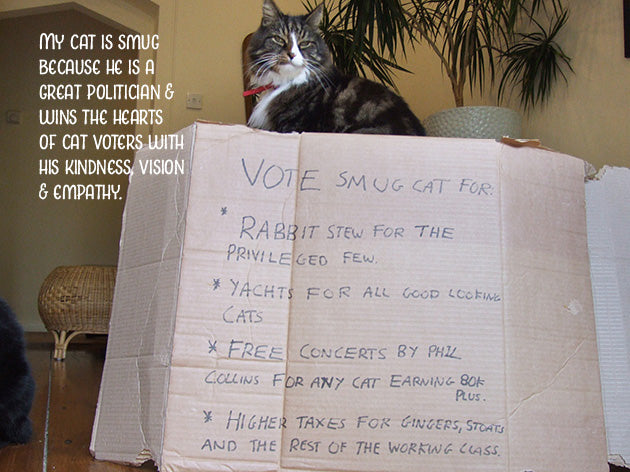 My cat is smug
because he is a
great politician &
wins the hearts
of cat voters with
his kindness, vision
& empathy.
VOTE SMUG CAT FOR:
* RABBIT STEW FOR THE
PRIVILEGED FEW.
* YACHTS FOR ALL GOOD LOOKING
CATS
* FREE CONCERTS BY PHIL
COLLINS FOR ANY CAT EARNING 80K
PLUS.
* HIGHER TAXES FOR GINGERS, STOATS
AND THE REST OF THE WORKING CLASS.